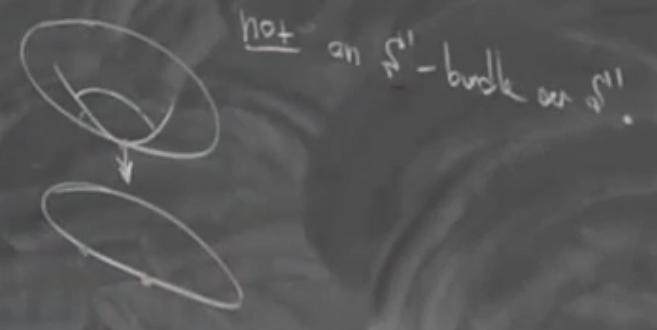 not an S¹-bundle over S¹.